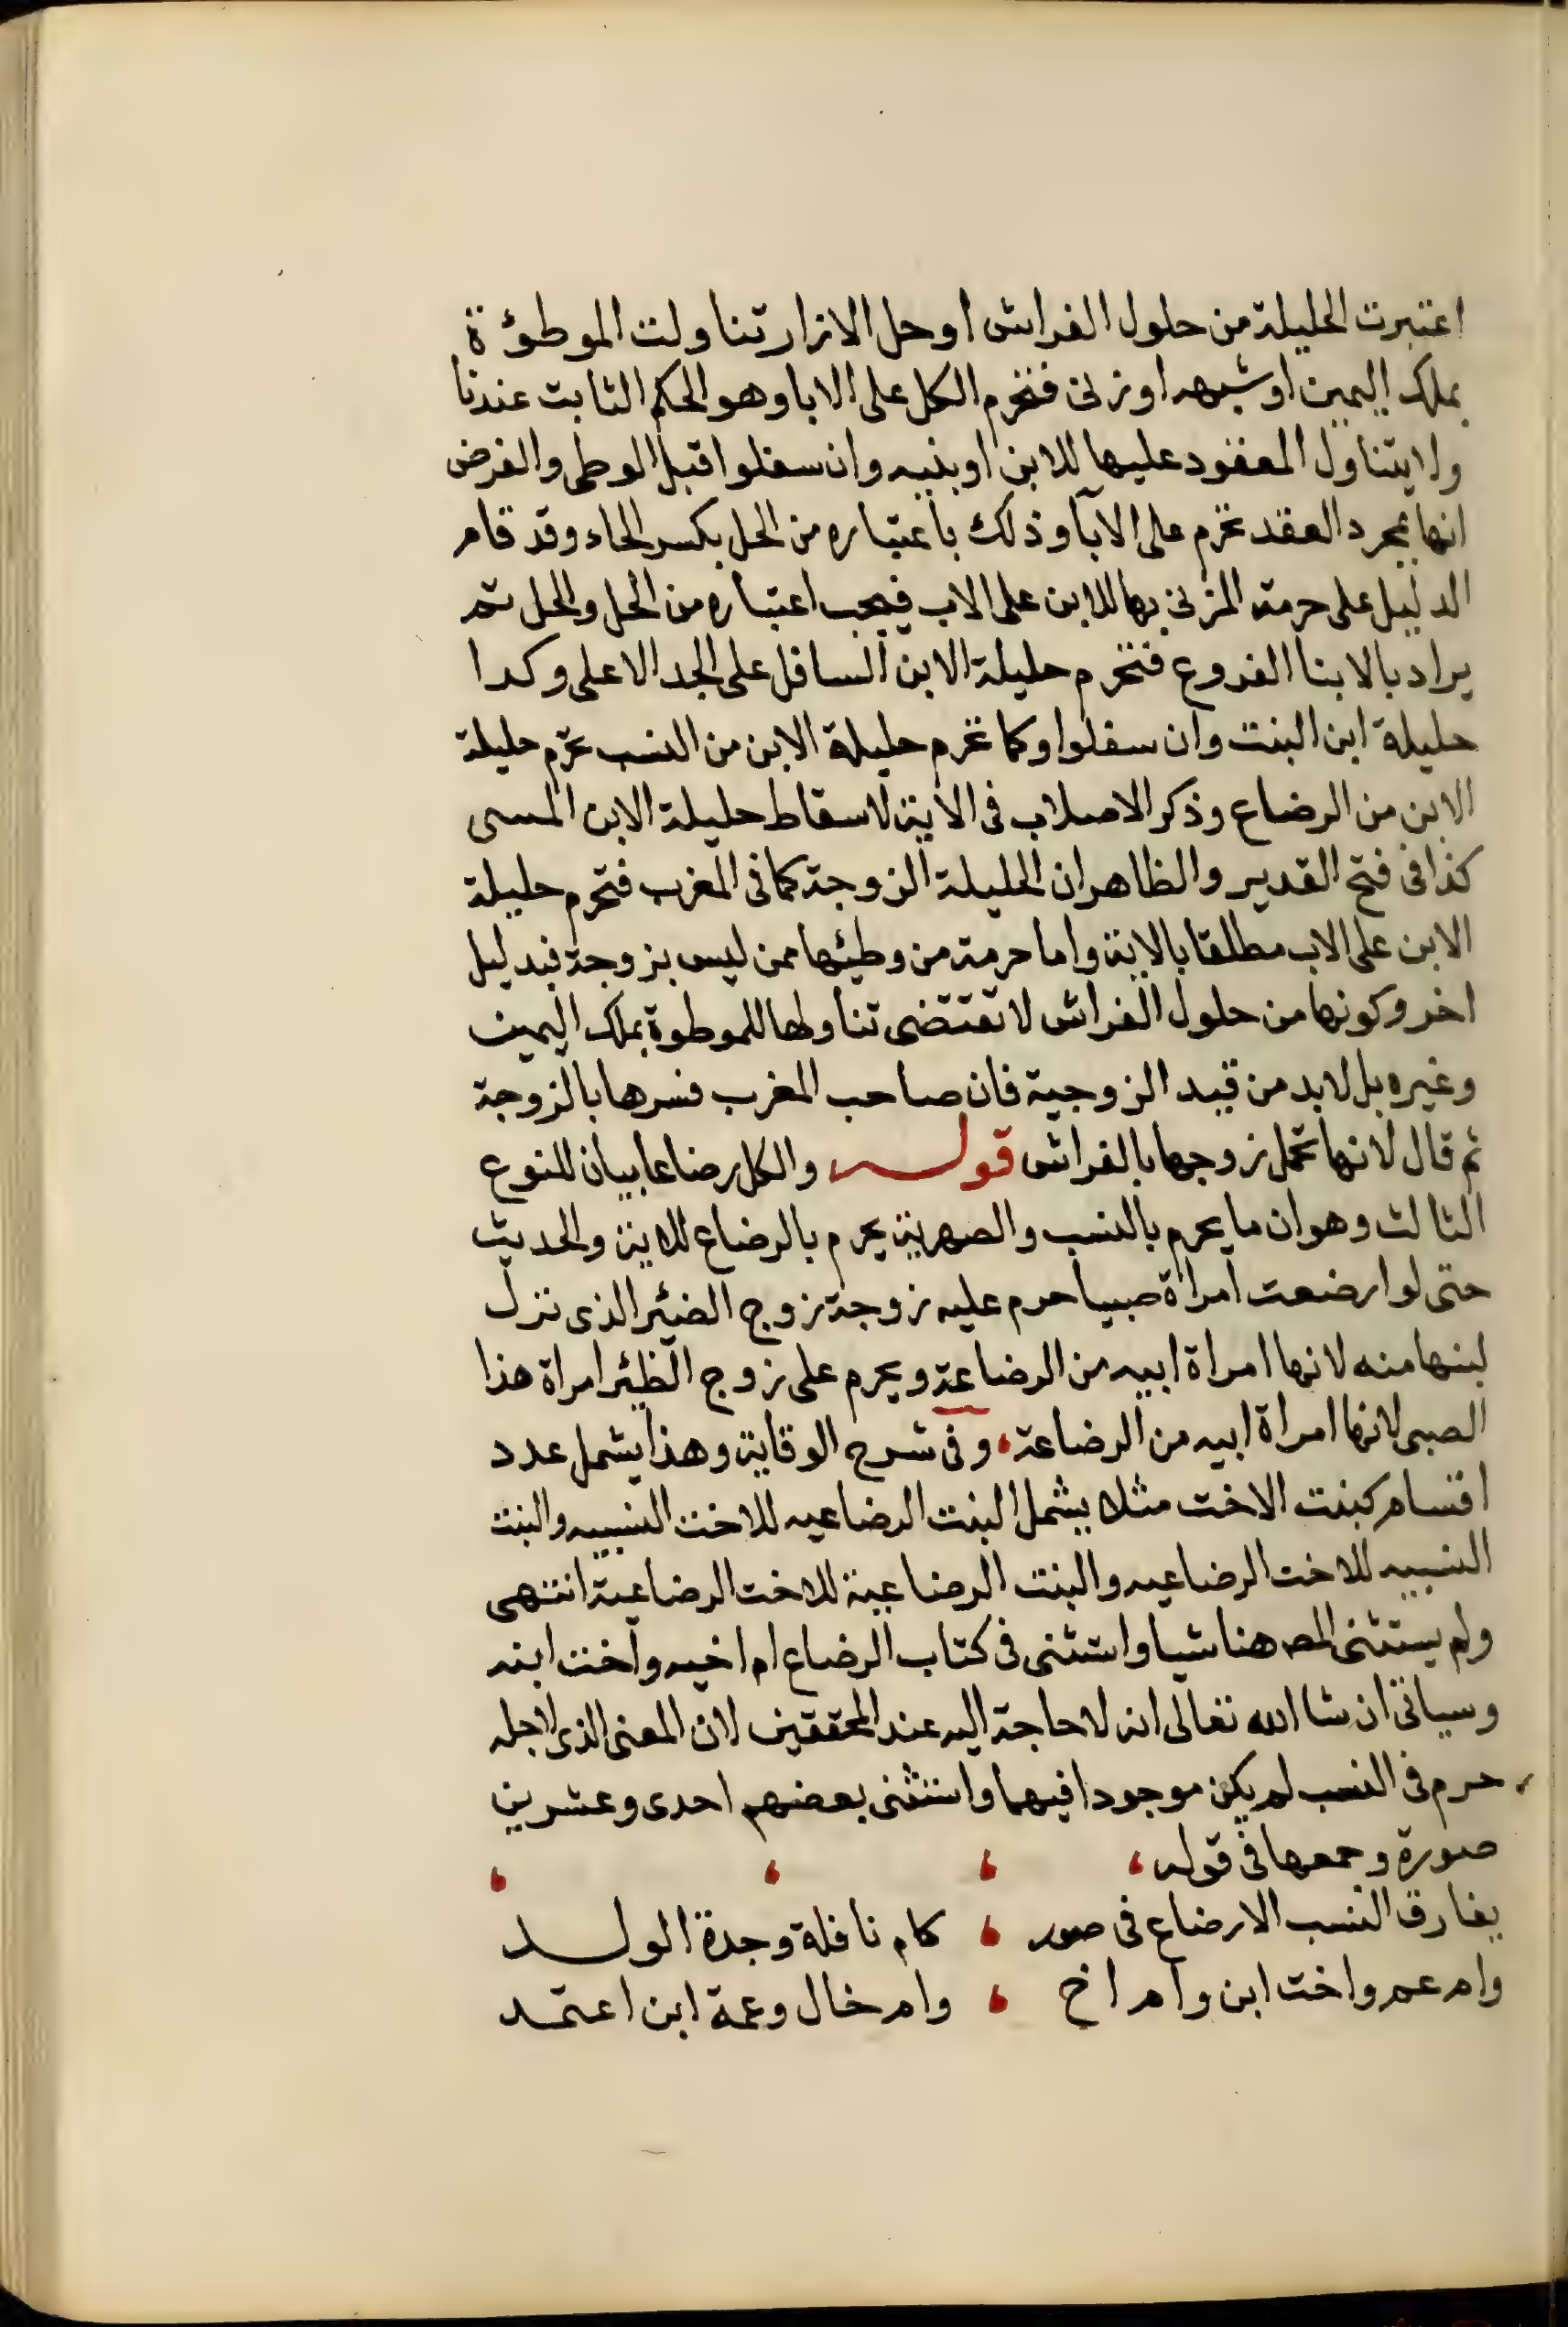 اعتبرت الحليلة من حلول الفراش او حل الازار تناولت الموطؤة
بملك اليمين او شبهه او زنى فتحرم الكل على الابا وهو الحكم الثابت عندنا
ولا يتناول المعقود عليها للابن او بنيه وان سفلوا قبل الوطى والغرض
انها بمجرد العقد تحرم على الآبا وذلك باعتباره من الحل بكسر الحاء وقد قام
الدليل على حرمة المزنى بها للابن على الاب فيجب اعتباره من الحل والحل ثم
يراد بالابنا الفروع فتحرم حليلة الابن السافل على الجد الاعلى وكدا
حليلة ابن البنت وان سفلوا وكما تحرم حليلة الابن من النسب تحرم حليلة
الابن من الرضاع وذكر الاصلاب فى الاية لاسقاط حليلة الابن المسى
كذا فى فتح القدير والظاهر ان الحليلة الزوجة كما فى المغرب فتحرم حليلة
الابن على الاب مطلقا بالاية واما حرمة من وطيئها ممن ليس بزوجة فبدليل
اخر وكونها من حلول الفراش لا تقتضى تناولها للموطوة بملك اليمين
وغيره بل لابد من قيد الزوجية فان صاحب المغرب فسرها بالزوجة
ثم قال لانها تحل زوجها بالفراش قوله والكل رضاعا بيان للنوع
الثالث وهو ان ما يحرم بالنسب والصهرية يحرم بالرضاع للاية والحديث
حتى لو ارضعت امراة صبيا حرم عليه زوجة زوج الضئر الذى نزل
لبنها منه لانها امراة ابيه من الرضاعة ويحرم على زوج الظئر امراة هذا
الصبى لانها امراة ابيه من الرضاعة، وفى شرح الوقاية وهذا يشمل عدد
اقسام كبنت الاخت مثلا يشمل البنت الرضاعيه للاخت النسبيه والبنت
النسبيه للاخت الرضاعيه والبنت الرضاعية للاخت الرضاعية انتهى
ولم يستثنى المصـ هنا شيا واستثنى فى كتاب الرضاع ام اخيه واخت ابنه
وسياتى ان شا الله تعالى انه لا حاجة اليه عند المحققين لان المعنى الذى لاجله
حرم فى النسب لم يكن موجودا فيهما واستثنى بعضهم احدى وعشرين
صورة وجمعها فى قوله،
يفارق النسب الارضاع فى صور ، كام نافلة وجدة الولد
وام عم واخت ابن وام اخ ، وام خال وعمة ابن اعتمد